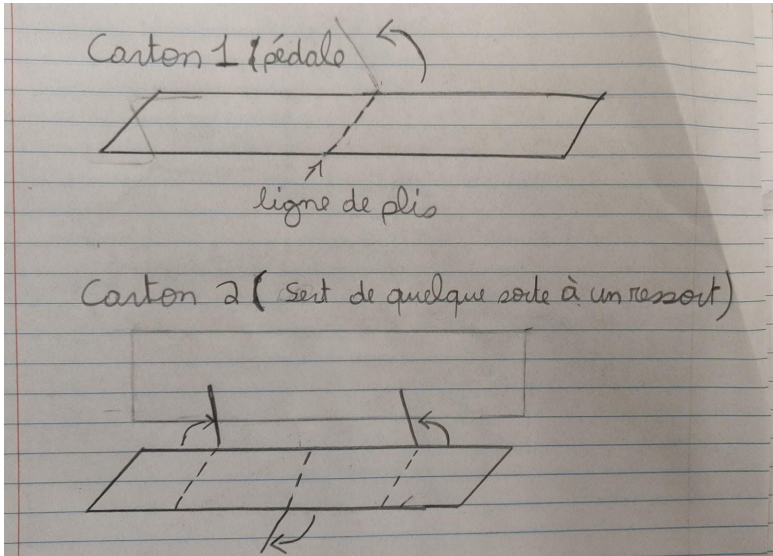 Carton 1 (pédale
ligne de plis
Carton 2 ( Sert de quelque sorte à un ressort)